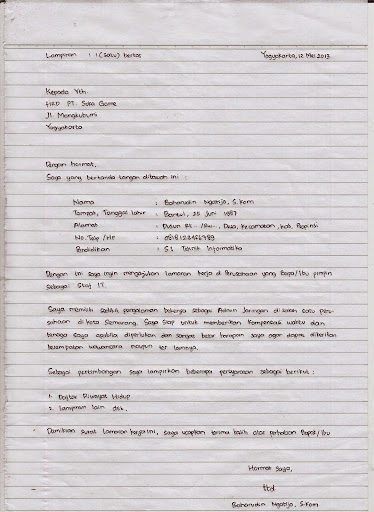 Lampiran : 1 (satu) berkas Yogyakarta, 12 Mei 2013
Kepada Yth.
HRD PT. Suka Game
Jl. Mangkubumi
Yogyakarta
Dengan hormat,
Saya yang bertanda tangan dibawah ini :
Nama : Baharudin Ngatijo, S.Kom
Tempat, Tanggal lahir : Bantul, 25 Juni 1987
Alamat : Dusun Rt.. /Rw.., Desa, Kecamatan, Kab, Propinsi
No. Telp /Hp : 0818123456789
Pendidikan : S1 Teknik Informatika
Dengan ini saya ingin mengajukan lamaran kerja di Perusahaan yang Bapak/Ibu pimpin
sebagai Staf IT.
Saya memiliki sedikit pengalaman bekerja sebagai Admin Jaringan di salah satu peru-
sahaan di kota Semarang. Saya siap untuk memberikan kompensasi waktu dan
tenaga saya apabila diperlukan dan sangat besar harapan saya agar dapat diberikan
kesempatan wawancara maupun tes lainnya.
Sebagai pertimbangan saya lampirkan beberapa persyaratan sebagai berikut :
1. Daftar Riwayat Hidup
2. lampiran lain dsk.
Demikian surat lamaran kerja ini, saya ucapkan terima kasih atas perhatian Bapak/Ibu
Hormat Saya,
ttd
Baharudin Ngatijo, S.Kom